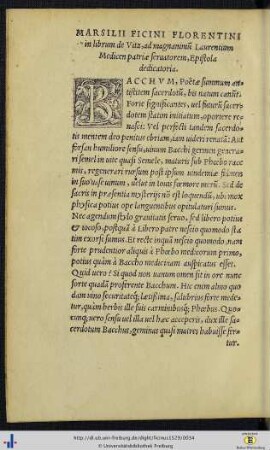 MARSILII FICINI FLORENTINI
in librum de Vita, ad magnanimũ Laurentium
Medicen patriæ seruatorem, Epistola
dedicatoria.
BACCHVM, Poëtæ summum an
tistitem sacerdotũ, bis natum canũt.
Forte significantes, uel futurũ sacer
dotem statim initiatum, oportere re
nasci: Vel perfecti tandem sacerdo
tis mentem deo penitus ebriam, iam uideri renatã: Aut
forsan humiliore sensu, uinum Bacchi germen genera
ri semel in uite quasi Semele, maturis sub Phœbo race
mis, regenerari rursum post ipsum uindemiæ fulmen
in suo uase uinum, uelut in Iouis fœmore merũ. Sed de
sacris in præsentia mysterijs nõ est loquendũ, ubi mox
physica potius ope languentibus opitulaturi sumus.
Nec agendum stylo grauitatis seruo, sed libero potius
& iocoso, postquã à Libero patre nescio quomodo sta
tim exorsi sumus. Et recte inquã nescio quomodo, nam
forte prudentior aliquis à Phœbo medicorum primo,
potius quàm à Baccho medicinam auspicatus esset.
Quid uero? Si quid non uanum omen sit in ore nunc
forte quodã proferente Bacchum. Hic enim almo quo
dam uino securitateq́; lætissima, salubrius forte mede
tur, quàm herbis ille suis carminibusq́; Phœbus. Quo-
cunq; uero sensu uel illa uel hæc acceperis, dux ille sa
cerdotum Bacchus, geminas quasi matres habuisse fer
tur.
http://dl.ub.uni-freiburg.de/diglit/ficinus1529/0034
© Universitätsbibliothek Freiburg